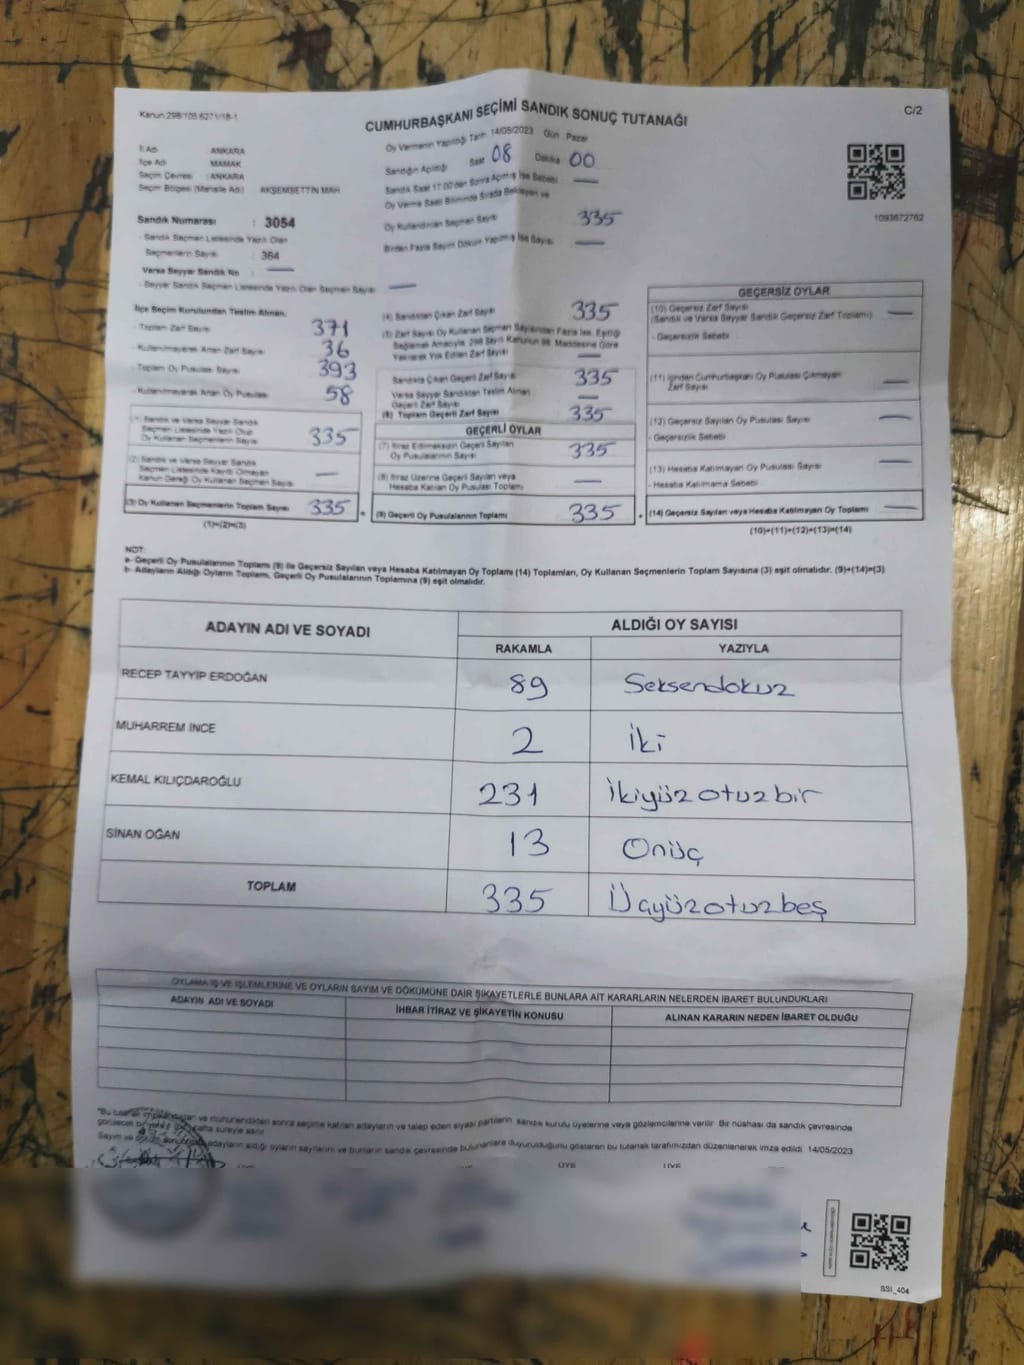 Kanun:298/105 6271/18-1
C/2
CUMHURBAŞKANI SEÇİMİ SANDIK SONUÇ TUTANAĞI
İl Adı ANKARA
İlçe Adı MAMAK
Seçim Çevresi : ANKARA
Seçim Bölgesi (Mahalle Adı) AKŞEMSETTİN MAH
Sandık Numarası : 3054
- Sandık Seçmen Listesinde Yazılı Olan
Seçmenlerin Sayısı : 364
Varsa Seyyar Sandık No : —
- Seyyar Sandık Seçmen Listesinde Yazılı Olan Seçmen Sayısı —
Oy Vermenin Yapıldığı Tarih 14/05/2023 Gün Pazar
Sandığın Açıldığı Saat 08 Dakika 00
Sandık Saat 17.00'den Sonra Açılmış İse Sebebi —
Oy Verme Saati Bitiminde Sırada Bekleyen ve
Oy Kullandırılan Seçmen Sayısı 335
Birden Fazla Sayım Döküm Yapılmış İse Sayısı —
1093672762
İlçe Seçim Kurulundan Teslim Alınan,
- Toplam Zarf Sayısı 371
- Kullanılmayarak Artan Zarf Sayısı 36
- Toplam Oy Pusulası Sayısı 393
- Kullanılmayarak Artan Oy Pusulası 58
(1) Sandık ve Varsa Seyyar Sandık
Seçmen Listesinde Yazılı Olup
Oy Kullanan Seçmenlerin Sayısı 335
(2) Sandık ve Varsa Seyyar Sandık
Seçmen Listesinde Kaydı Olmayan
Kanun Gereği Oy Kullanan Seçmen Sayısı —
(3) Oy Kullanan Seçmenlerin Toplam Sayısı 335
(1)+(2)=(3)
(4) Sandıktan Çıkan Zarf Sayısı 335
(5) Zarf Sayısı Oy Kullanan Seçmen Sayısından Fazla İse, Eşitliği
Sağlamak Amacıyla, 298 Sayılı Kanunun 98. Maddesine Göre
Yakılarak Yok Edilen Zarf Sayısı —
Sandıkta Çıkan Geçerli Zarf Sayısı 335
Varsa Seyyar Sandıktan Teslim Alınan
Geçerli Zarf Sayısı —
(6) Toplam Geçerli Zarf Sayısı 335
GEÇERLİ OYLAR
(7) İtiraz Edilmeksizin Geçerli Sayılan
Oy Pusulalarının Sayısı 335
(8) İtiraz Üzerine Geçerli Sayılan veya
Hesaba Katılan Oy Pusulası Toplamı —
= (9) Geçerli Oy Pusulalarının Toplamı 335
GEÇERSİZ OYLAR
(10) Geçersiz Zarf Sayısı
(Sandık ve Varsa Seyyar Sandık Geçersiz Zarf Toplamı) —
- Geçersizlik Sebebi
(11) İçinden Cumhurbaşkanı Oy Pusulası Çıkmayan
Zarf Sayısı —
(12) Geçersiz Sayılan Oy Pusulası Sayısı —
- Geçersizlik Sebebi
(13) Hesaba Katılmayan Oy Pusulası Sayısı —
- Hesaba Katılmama Sebebi
+ (14) Geçersiz Sayılan veya Hesaba Katılmayan Oy Toplamı —
(10)+(11)+(12)+(13)=(14)
NOT:
a- Geçerli Oy Pusulalarının Toplamı (9) ile Geçersiz Sayılan veya Hesaba Katılmayan Oy Toplamı (14) Toplamları, Oy Kullanan Seçmenlerin Toplam Sayısına (3) eşit olmalıdır. (9)+(14)=(3)
b- Adayların Aldığı Oyların Toplamı, Geçerli Oy Pusulalarının Toplamına (9) eşit olmalıdır.
ADAYIN ADI VE SOYADI ALDIĞI OY SAYISI
RAKAMLA YAZIYLA
RECEP TAYYİP ERDOĞAN 89 Seksendokuz
MUHARREM İNCE 2 İki
KEMAL KILIÇDAROĞLU 231 İkiyüzotuzbir
SİNAN OĞAN 13 Onüç
TOPLAM 335 Üçyüzotuzbeş
OYLAMA İŞ VE İŞLEMLERİNE VE OYLARIN SAYIM VE DÖKÜMÜNE DAİR ŞİKAYETLERLE BUNLARA AİT KARARLARIN NELERDEN İBARET BULUNDUKLARI
ADAYIN ADI VE SOYADI İHBAR İTİRAZ VE ŞİKAYETİN KONUSU ALINAN KARARIN NEDEN İBARET OLDUĞU
"Bu tutanak ve mühürlendikten sonra seçime katılan adayların ve talep eden siyasi partilerin sandık kurulu üyelerine veya gözlemcilerine verilir. Bir nüshası da sandık çevresinde
görülecek bir yere bir hafta süreyle asılır
Sayım ve döküm adayların aldığı oyların sayılarını ve bunların sandık çevresinde bulunanlara duyurulduğunu gösteren bu tutanak tarafımızdan düzenlenerek imza edildi. 14/05/2023
ÜYE ÜYE
SSI_404